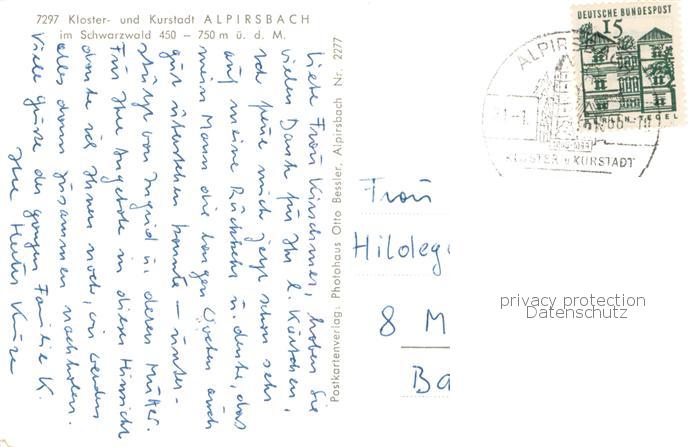 7297 Kloster- und Kurstadt ALPIRSBACH
im Schwarzwald 450 – 750 m ü. d. M.
Liebe Frau Kirschner, haben Sie
vielen Dank für Ihr l. Kärtchen,
ich freue mich jetzt schon sehr
auf meine Rückkehr u. denke, das
mein Mann die langen Wochen auch
gut überstehen konnte – unter-
stützt von Ingrid u. deren Mutter.
Für Ihre Angebote in dieser Hinsicht
danke ich Ihnen noch, wir werden
alles dann zusammen nachholen.
Viele Grüsse der ganzen Familie K.
Ihre
Postkartenverlag: Photohaus Otto Bessler, Alpirsbach Nr. 2277
DEUTSCHE BUNDESPOST
15
BERLIN-TEGEL
ALPIRS
KLOSTER u KURSTADT
Frau
Hildeg
8 M
Ba
privacy protection
Datenschutz